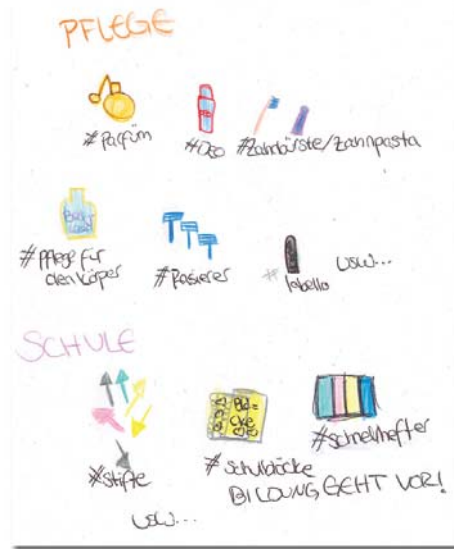 PFLEGE
# Parfüm
# Deo
# Zahnbürste/Zahnpasta
Body
# Pflege für
den Körper
# Rasierer
# labello
usw...
SCHULE
# Stifte
Blö=
cke
# Schulblöcke
# Schnellhefter
BILDUNG GEHT VOR!
usw...